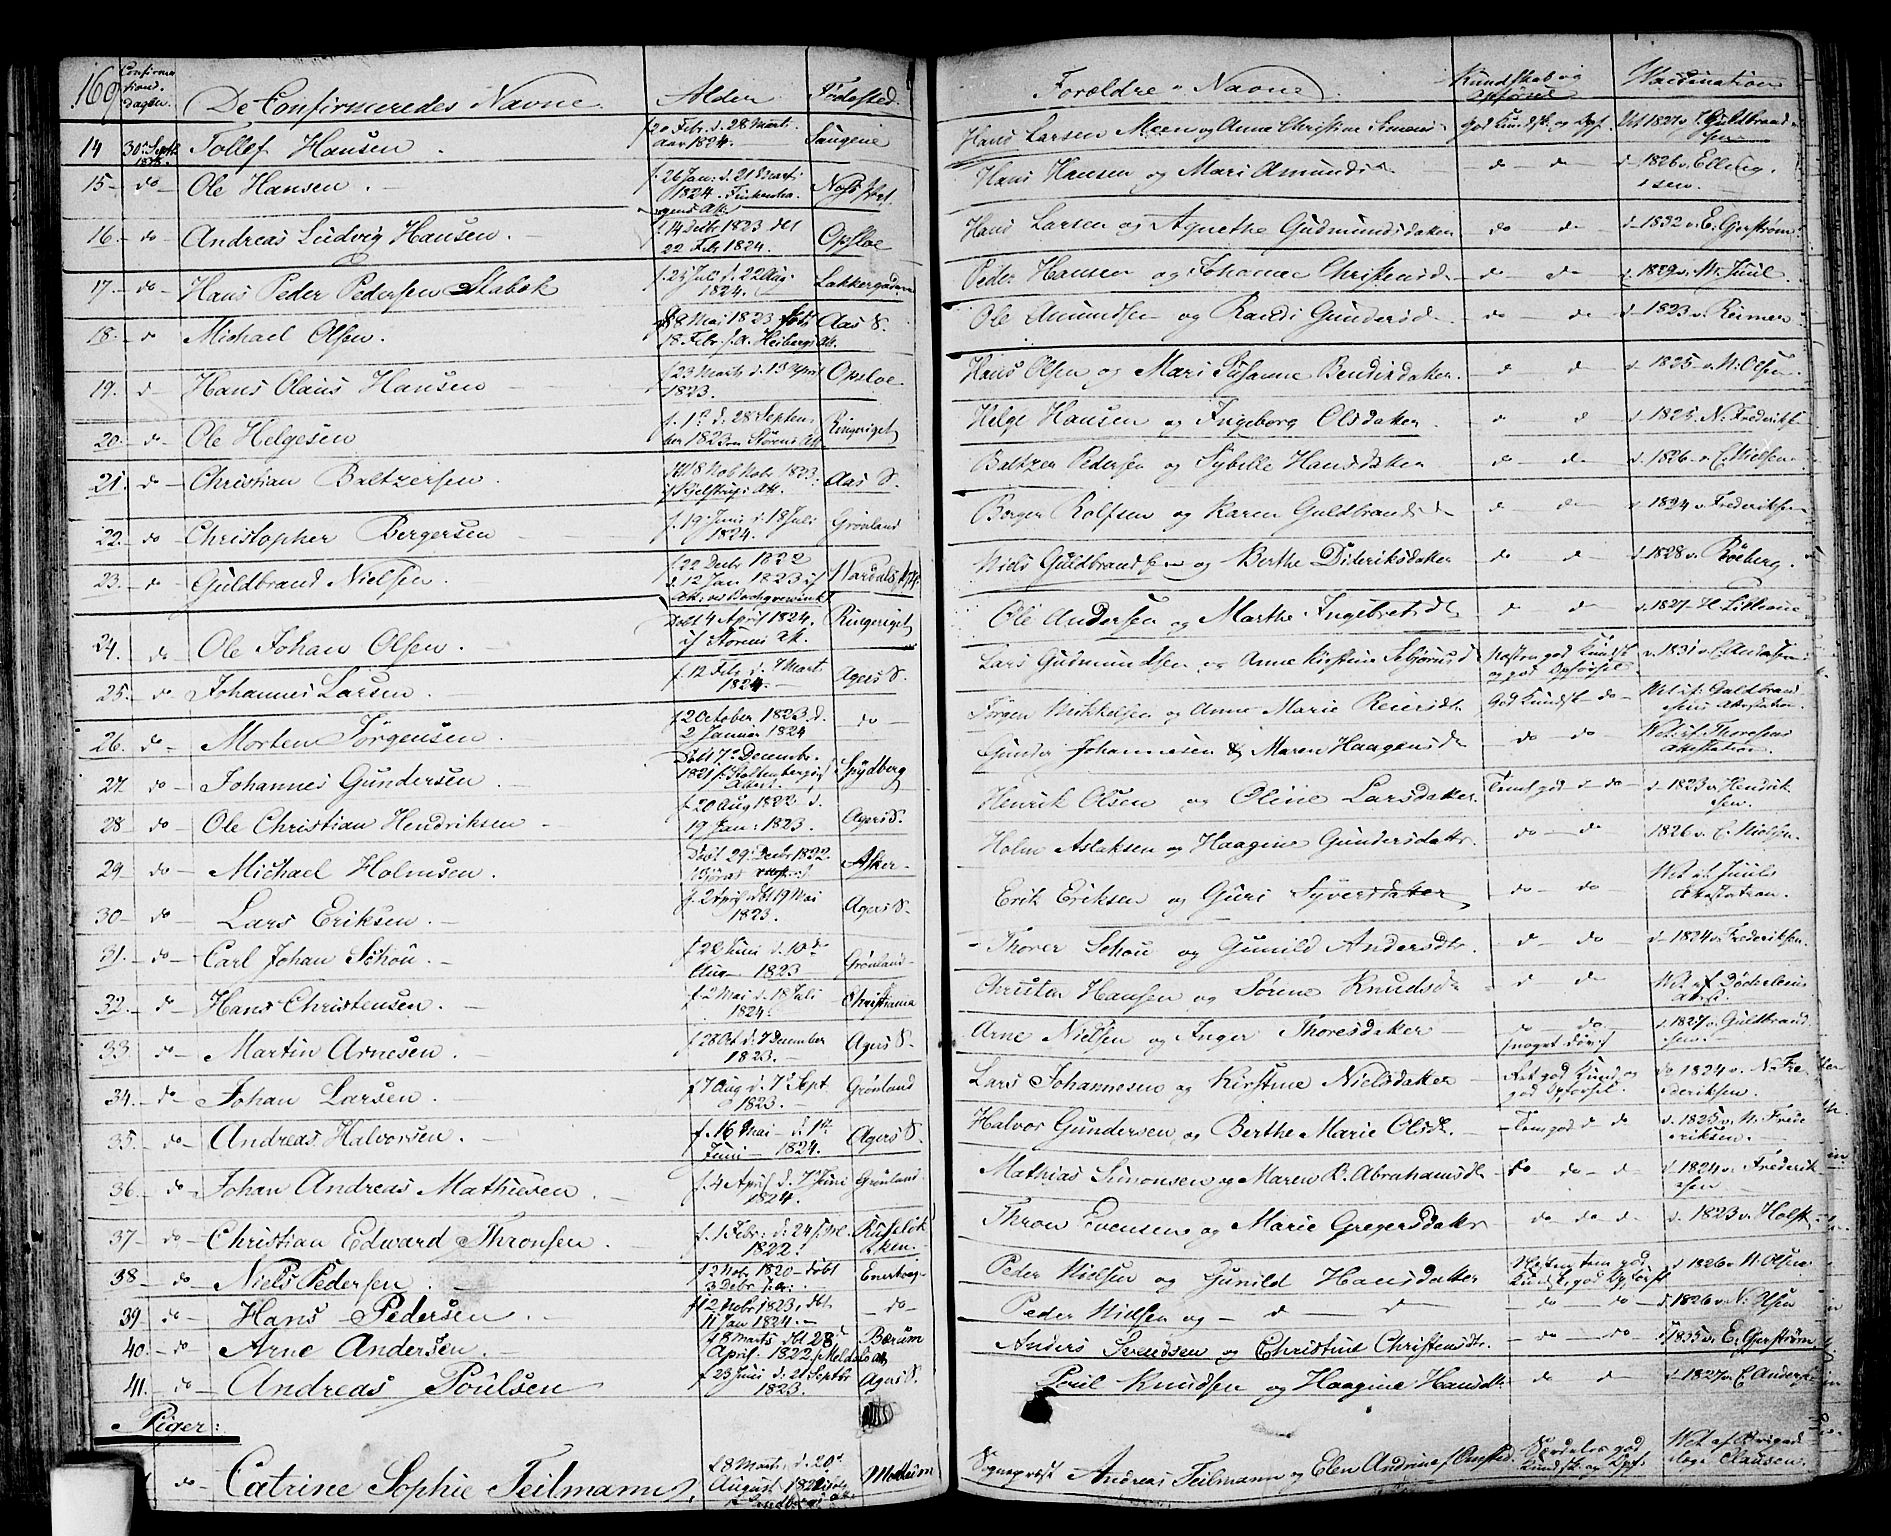 169
Confirma
tions
Dagen.
De Confirmeredes Navne.
Alder
Fødested.
Forældre Navne
Kundskab og
Opførsel
Vaccination
14 30te Septbr 1838. Tollef Hansen f 20 Febr. d. 28 Marts Aar 1824. Hans Larsen Meen og Anne Christine God Kundsk. og Opf. 1827 v. Guldbrandsen
15 do Ole Hansen. f. 26 Jan: d. 21 Marts 1824. Hans Hansen og Mari Amundsd. d d 1826 v. Elling.sen.
16 do Andreas Ludvig Hansen. f. 14 Decbr 1823 dbt 22 Febr 1824. Opsloe Hans Larsen og Agnethe Gudmundsdatter do do d. 1832 v. E. Gjerstrøm
17. do Hans Peder Pedersen Stabæk f. 25 Juli d. 22 Aug: 1824. Lakkergaden Peder Hansen og Johanne Christensd. d do d. 1829 v. M. Juul
18. do Michael Olsen. 8 Mai 1823 døbt 18 Febr. f. A. Heibergs Att. Aas S. Ole Amundsen og Randi Gundersd. do do d. 1823 v. Reimer
19. d Hans Olaus Hansen f 23 Marts d. 13 April 1823. Opsloe. Hans Olsen og Mari Susanne Bendixdatter. d d d. 1835 v. N: Olsen.
20. do Ole Helgesen f. 1te d. 28 September 1823 Størens Att. Ringeriget Helge Hansen og Ingeborg Olsdatter d d d. 1825 N: Frederiks
21. do Christian Baltzersen. 1823. Kjelstrups Att. Aas S. Baltzer Pedersen og Sybille Hansdatter do do d. 1826 v. C. Nielsen
22. do Christopher Bergersen f. 19 Juni d. 18 Juli 1824. Grønland Berger Rolfsen og Karen Guldbrandsd. d d d. 1824 v. Frederiksen
23. do Guldbrand Nielsen. f. 22 Decbr 1822 d. 12 Jan. 1823 Niels Guldbrandsen og Berthe Dideriksdatter do do d. 1828 v. Røeberg.
24. do Ole Johan Olsen. Døbt 4 April 1824. if Størens Att. Ringeriget Ole Andersen og Marthe Ingebretsd. d do d. 1827
25. do Johannes Larsen. f. 12 Febr d. 7 Mart. 1824. Agers S. Lars Gudmundsen og Anne Kirstine Næsten god Kundsk. og god Opførsel 1831 v. C. Andersen
26. do Morten Jørgensen. f 2 October 1823. d. 2 Januar 1824 do Jørgen Mikkelsen og Anne Marie Reiersdt. God Kundsk. do Vet if: Guldbrandsens Attestation.
27. do Johannes Gundersen Døbt 7de Decembr. 1821 Spydberg Gunder Johannesen & Maren Haagensd. do do Vet: if Thoresens Attestation.
28 do Ole Christian Hendriksen f 20 Aug 1822 d. 19 Jan: 1823. Agers S. Henrik Olsen og Oline Larsdatter. Temt god d do d. 1823 v. Hendriksen.
29 do Michael Holmsen. Døbt 29: Decbr 1822. Asker Holm Aslaksen og Haagine Gundersdattr. do do 1826 v. C. Nielsen.
30 do Lars Eriksen. f. 2 April dbt 19 Mai 1823. Agers S. Erik Eriksen og Guri Syversdatter do do Vet: if. Juuls Attestation.
31. do Carl Johan Schou. Juni d. 10de Aug 1823 Grønland Thorer Schou og Gunild Andersdtr. d do d. 1824 v. Frederiksen.
32. do Hans Christensen. f. 2 Mai d. 18 Juli 1824. Christiania Christen Hansen og Sørene Knudsdt. d do Vet. if Døderleins Attest.
33 do Martin Arnesen. f 28 Oct d. 7 December 1823. Agers S. Arne Nielsen og Inger Thoresdatter do do noget døv d. 1827 v. Guldbrandsen.
34. do Johan Larsen. f 7 Aug d. 7 Sept 1823. Grønland Lars Johannesen og Kirstine Nielsdatter god Kund. og god Opførsel. do 1824 v. N. Frederiksen.
35. do Andreas Halvorsen. f. 16 Mai d. 1te Juni 1824. Agers S. Halvor Gundersen og Berthe Marie Olsdt. Temt god d do d. 1825 v. N. Frederiksen.
36. do Johan Andreas Mathiesen f. 4 April d. 7 Juni 1824. Grønland Mathias Simonsen og Maren B. Abrahamsdt. do do d d 1824 v. Frederiksen
37 do Christian Edward Thronsen. f. 1 Febr: d. 24 1822. Thron Evensen og Marie Gregersdatter do do d d. 1823 v. Holst
38 do Niels Pedersen. f 2 Nobr 1820 døbt 3 Decbr s. A: Enebag Peder Nielsen og Gunild Hansdatter Næsten tem god Kundsk. god Opførsl d. 1826 v. N. Olsen
39. do Hans Pedersen f 12 Nobr 1823, dbt 11 Jan 1824. do Peder Nielsen og d d do do d. 1826 v. N. Olsen
40. do Arne Andersen. f 8 Marts dbt 28 April. 1822. Bærum Anders Svendsen og Christine Christensdtr. do do d. 1835 v. E. Gjerstrøm
41. do Andreas Poulsen f 23 Juni d. 21 Septbr 1823. Agers S. Poul Knudsen og Haagine Hansdt. d do d. 1827 v. C. Anders
Piger:
do Catrine Sophie Teilmann f 8 Marts d. 20de August Modum Sognepræst Andreas Teilmann og Elen Andrine Særdeles god Kundsk. og Opf: Vet af Brigadelæge Clausen.